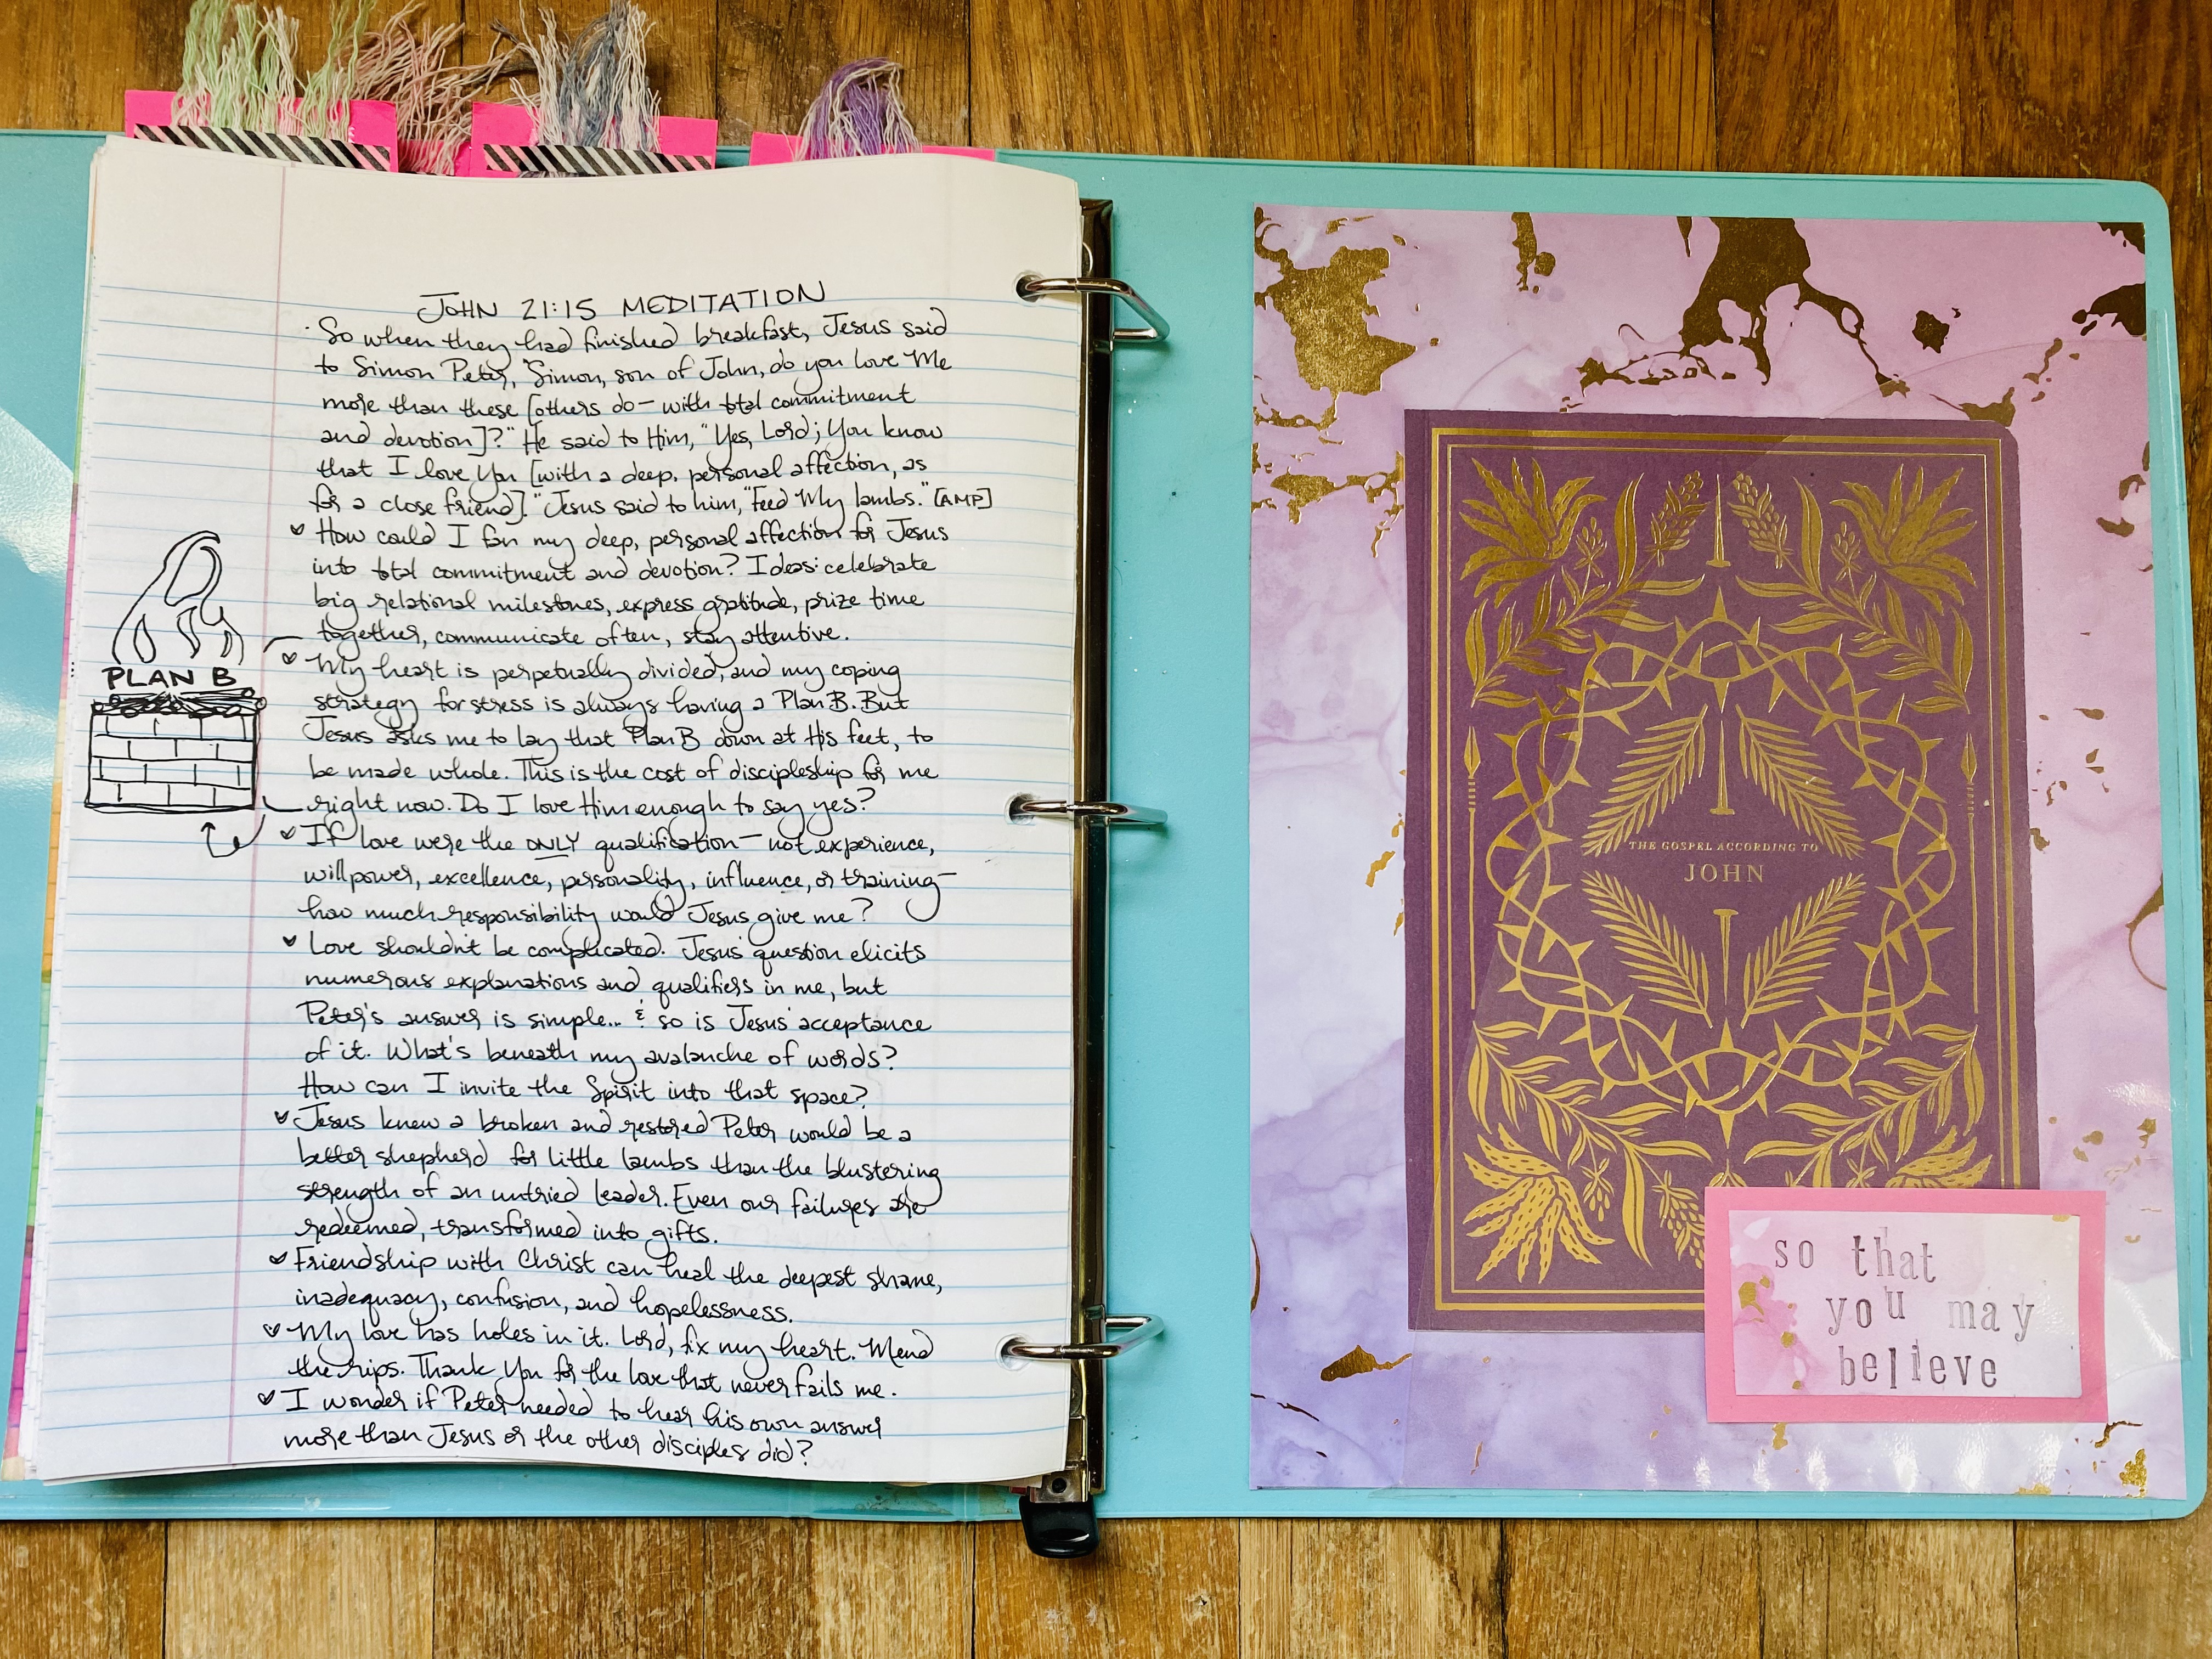 JOHN 21:15 MEDITATION
So when they had finished breakfast, Jesus said
to Simon Peter, "Simon, son of John, do you love Me
more than these [others do — with total commitment
and devotion]?" He said to Him, "Yes, Lord; You know
that I love You [with a deep, personal affection, as
for a close friend]." Jesus said to him, "Feed My lambs." [AMP]
♥ How could I fan my deep, personal affection for Jesus
into total commitment and devotion? Ideas: celebrate
big relational milestones, express gratitude, prize time
together, communicate often, stay attentive.
♥ My heart is perpetually divided, and my coping
strategy for stress is always having a Plan B. But
Jesus asks me to lay that Plan B down at His feet, to
be made whole. This is the cost of discipleship for me
right now. Do I love Him enough to say yes?
♥ If love were the ONLY qualification — not experience,
willpower, excellence, personality, influence, or training —
how much responsibility would Jesus give me?
♥ Love shouldn't be complicated. Jesus' question elicits
numerous explanations and qualifiers in me, but
Peter's answer is simple... & so is Jesus' acceptance
of it. What's beneath my avalanche of words?
How can I invite the Spirit into that space?
♥ Jesus knew a broken and restored Peter would be a
better shepherd for little lambs than the blustering
strength of an untried leader. Even our failures are
redeemed, transformed into gifts.
♥ Friendship with Christ can heal the deepest shame,
inadequacy, confusion, and hopelessness.
♥ My love has holes in it. Lord, fix my heart. Mend
the rips. Thank You for the love that never fails me.
♥ I wonder if Peter needed to hear his own answer
more than Jesus or the other disciples did?
PLAN B
THE GOSPEL ACCORDING TO
JOHN
so that
you may
believe